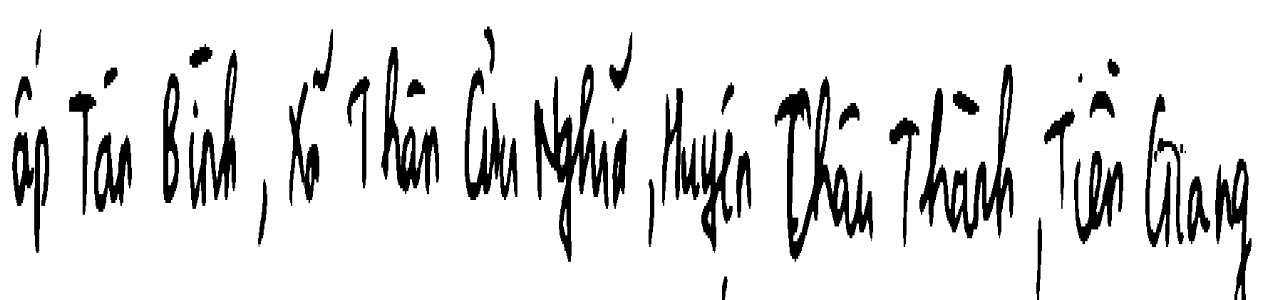 ấp Tân Bình, Xã Thân Cửu Nghĩa, Huyện Châu Thành, Tiền Giang